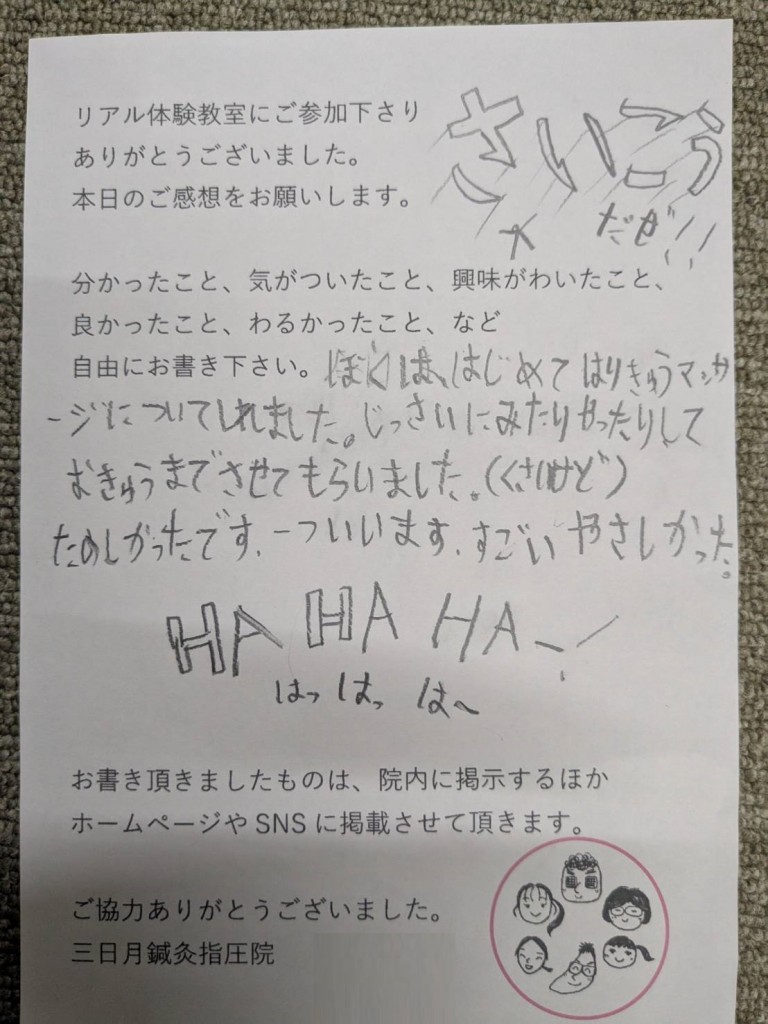 リアル体験教室にご参加下さり
ありがとうございました。
本日のご感想をお願いします。
さいこう
だぜ!!
分かったこと、気がついたこと、興味がわいたこと、
良かったこと、わるかったこと、など
自由にお書き下さい。ぼくは、はじめてはりきゅうマッサ
ージについてしれました。じっさいにみたりやったりして
おきゅうまでさせてもらいました。(くさいけど)
たのしかったです、一ついいます、すごいやさしかった。
HA HA HA~!
はっはっは~
お書き頂きましたものは、院内に掲示するほか
ホームページやSNSに掲載させて頂きます。
ご協力ありがとうございました。
三日月鍼灸指圧院